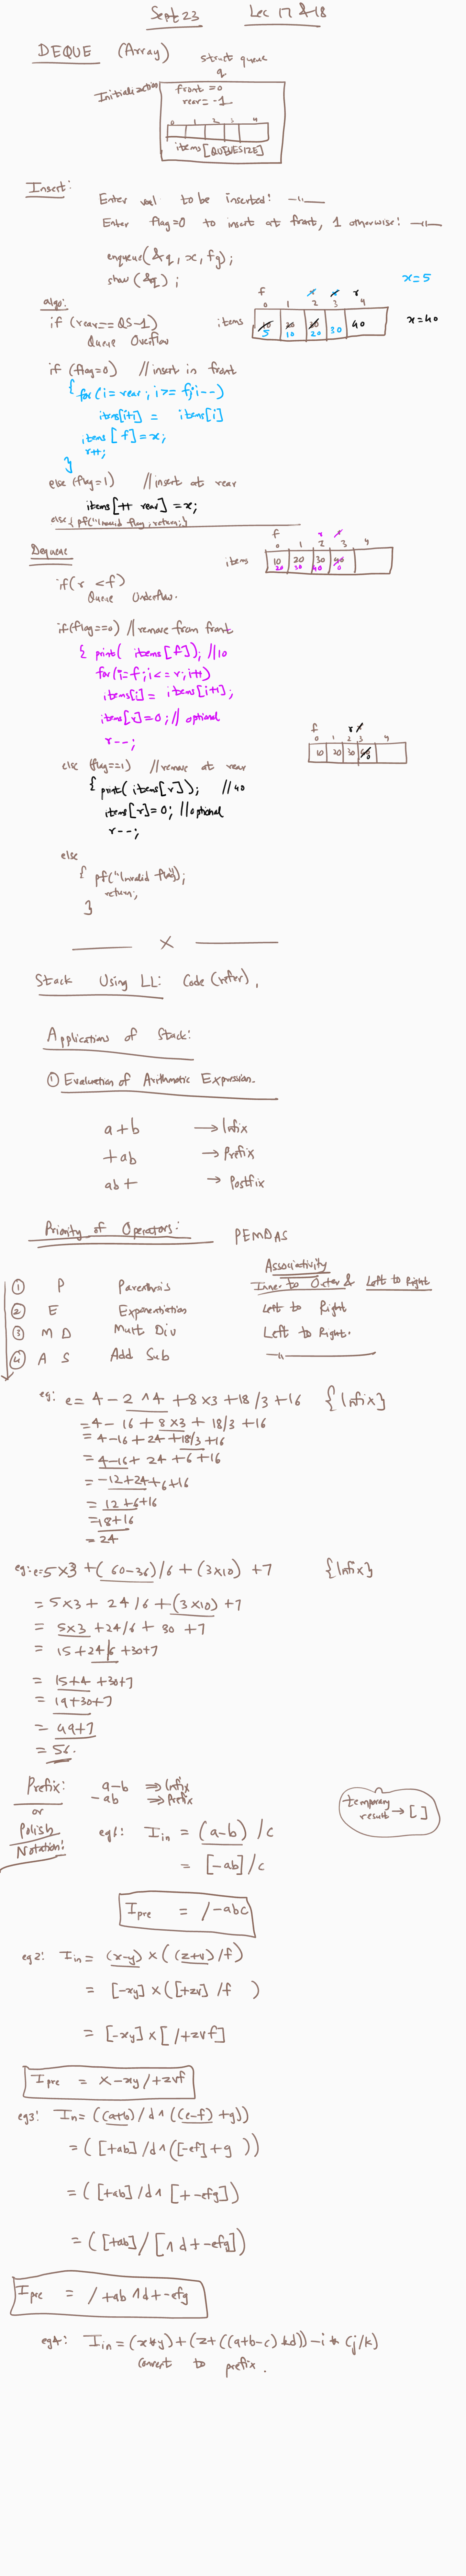 Sept 23 Lec 17 & 18
DEQUE (Array)
struct queue
q
Initialization
front = 0
rear = -1
0 1 2 3 4
items [QUEUESIZE]
Insert:
Enter val to be inserted: —"—
Enter flag=0 to insert at front, 1 otherwise: —"—
enqueue(&q, x, fg);
show (&q) ;
x=5
algo:
if (rear == QS-1)
Queue Overflow
f r r r
0 1 2 3 4
items 10 20 30 40
5 10 20 30
x=40
if (flag=0) //insert in front
{ for(i=rear; i>=f; i--)
items[i+1] = items[i]
items[f]=x;
r++;
}
else (flag=1) //insert at rear
items[++ rear] = x;
else { pf("Invalid flag; return;}
Dequeue
f r r
0 1 2 3 4
items 10 20 30 40
20 30 40 0
if(r < f)
Queue Underflow.
if(flag==0) //remove from front
{ print( items[f]); //10
for(i=f; i<=r; i++)
items[i] = items[i+1];
items[r]=0; // optional
r--;
f r r
0 1 2 3 4
10 20 30 40
0
else (flag==1) //remove at rear
{ print( items[r]); //40
items[r]=0; //optional
r--;
else
{ pf("Invalid flag");
return;
}
x
Stack Using LL: Code (refer).
Applications of Stack:
① Evaluation of Arithmatic Expression.
a+b → Infix
+ab → Prefix
ab+ → Postfix
Priority of Operators: PEMDAS
Associativity
① P Parenthesis Inner to Outer & Left to Right
② E Exponentiation Left to Right
③ M D Mult Div Left to Right.
④ A S Add Sub —"—
eg: e = 4 - 2 ^ 4 + 8 × 3 + 18 / 3 + 16 {Infix}
= 4 - 16 + 8×3 + 18/3 + 16
= 4-16 + 24 + 18/3 + 16
= 4-16 + 24 + 6 + 16
= -12+24+6+16
= 12+6+16
= 18+16
= 24
eg: e=5×3 + (60-36)/6 + (3×10) + 7 {Infix}
= 5×3 + 24/6 + (3×10) + 7
= 5×3 + 24/6 + 30 + 7
= 15 + 24/6 + 30+7
= 15+4 +30+7
= 19+30+7
= 49+7
= 56.
Prefix: a-b ⇒ Infix
or -ab ⇒ Prefix
temporary result → [ ]
Polish Notation:
eg1: Iin = (a-b) /c
= [-ab]/c
Ipre = /-abc
eg2: Iin = (x-y) × ((z+v)/f)
= [-xy] × ([+zv] /f )
= [-xy] × [ /+zvf]
Ipre = × -xy/+zvf
eg3: In = ((a+b)/d ^ ((e-f) +g))
= ( [+ab] /d ^ ([-ef] + g ))
= ( [+ab] /d ^ [+ -efg])
= ( [+ab] / [^ d + -efg])
Ipre = / +ab ^d+-efg
eg4: Iin = (x*y) + (z+ ((a+b-c) *d)) - i * (j/k)
convert to prefix.